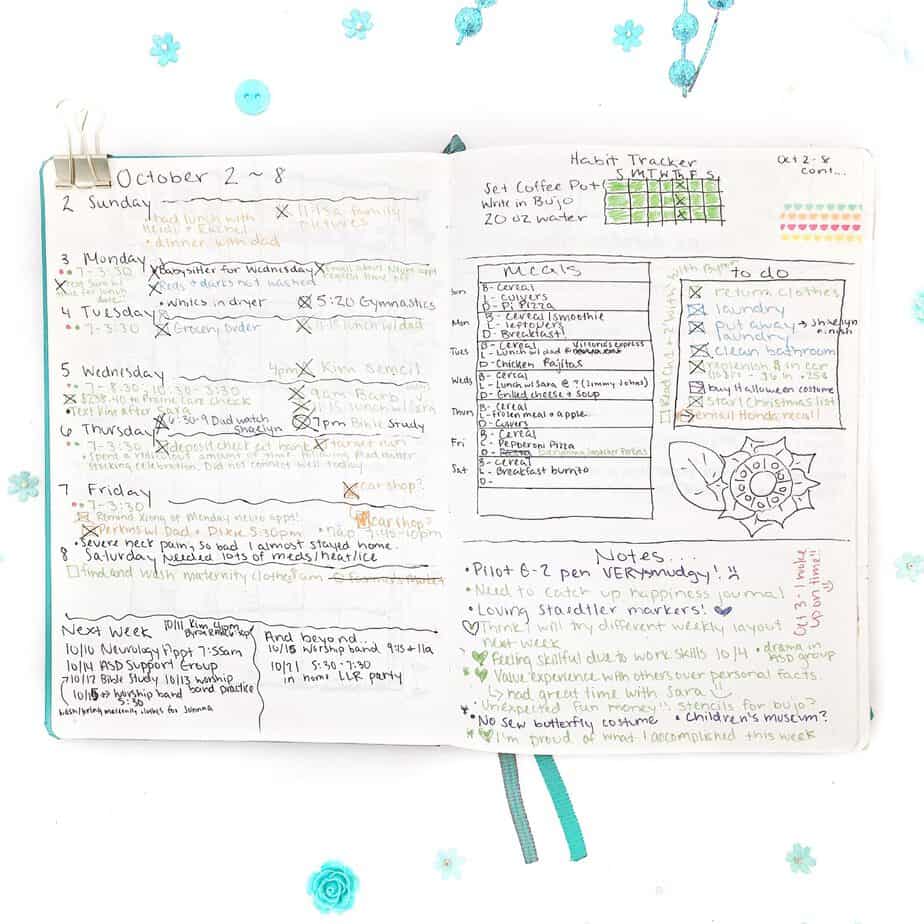 October 2 ~ 8
2 Sunday
had lunch with
Heidi + Rachel
• dinner with dad
11:15a family
pictures
3 Monday
7-3:30
Babysitter for Wednesday
Email about Neuro appt
Reds + darks not washed
• Whites in dryer
5:20 Gymnastics
4 Tuesday
7-3:30
Grocery order
11:15 lunch w/ dad
5 Wednesday
4pm Kim stencil
7-8:30, 10:30-3:30
$238.40 to Prairie Care check
9am Barb
11:15 lunch w/ Sara
6:30-9 Dad watch
Shaelyn
7pm Bible Study
6 Thursday
7-3:30
deposit check at bank
• Spend a ridiculous amount of time
stacking celebration. Did not connect well today
7 Friday
car shop?
7-3:30
Remind Xiong of Monday neuro apps!
car shop?
Perkins w/ Dad + Dixie 5:30pm
• nap 7:45-10pm
• Severe neck pain, so bad I almost stayed home.
Needed lots of meds/heat/ice
8 Saturday
find and wash maternity clothes
Next Week
10/11 Kim 4pm
10/10 Neurology Appt 7:55am
10/14 ASD Support Group
10/12 Bible Study 10/13 worship
band practice
10/15 → worship band
5:30
wash/bring maternity clothes for Johnna
And beyond...
10/15 worship band 9:45 + 11a
10/21 5:30-7:30
in home LLR party
Habit Tracker
Oct 2-8
cont...
S M T W Th F S
Set Coffee Pot
Write in Bujo
20 oz water
Meals
Sun
B- Cereal
L- Culvers
D- Pi Pizza
Mon
B- Cereal/smoothie
L- leftovers
D- Breakfast
Tues
B- Cereal
L- Lunch w/ dad
D- Chicken Fajitas
Weds
B- Cereal
L- Lunch w/ Sara @ ? (Jimmy Johns)
D- Grilled cheese + soup
Thurs
B- Cereal
L- frozen meal + apple
D- Culvers
Fri
B- Cereal
L- Pepperoni Pizza
D-
Sat
B- Cereal
L- Breakfast burrito
D-
to do
return clothes
laundry
put away
laundry
→ Shaelyn
finish
clean bathroom
replenish $ in car
buy Halloween costume
Start Christmas list
email Honda recall
Notes...
• Pilot G-2 pen VERY smudgy!
• Need to catch up happiness journal
• Loving Staedtler markers!
Think I will try different weekly layout
next week
Feeling skillful due to work skills 10/4
• drama in
ASD group
Value experience with others over personal facts.
↳ had great time with Sara
• Unexpected Fun money!! stencils for bujo?
• No sew butterfly costume
• Children's museum?
I'm proud of what I accomplished this week
Oct 3 - I woke
up on time!!